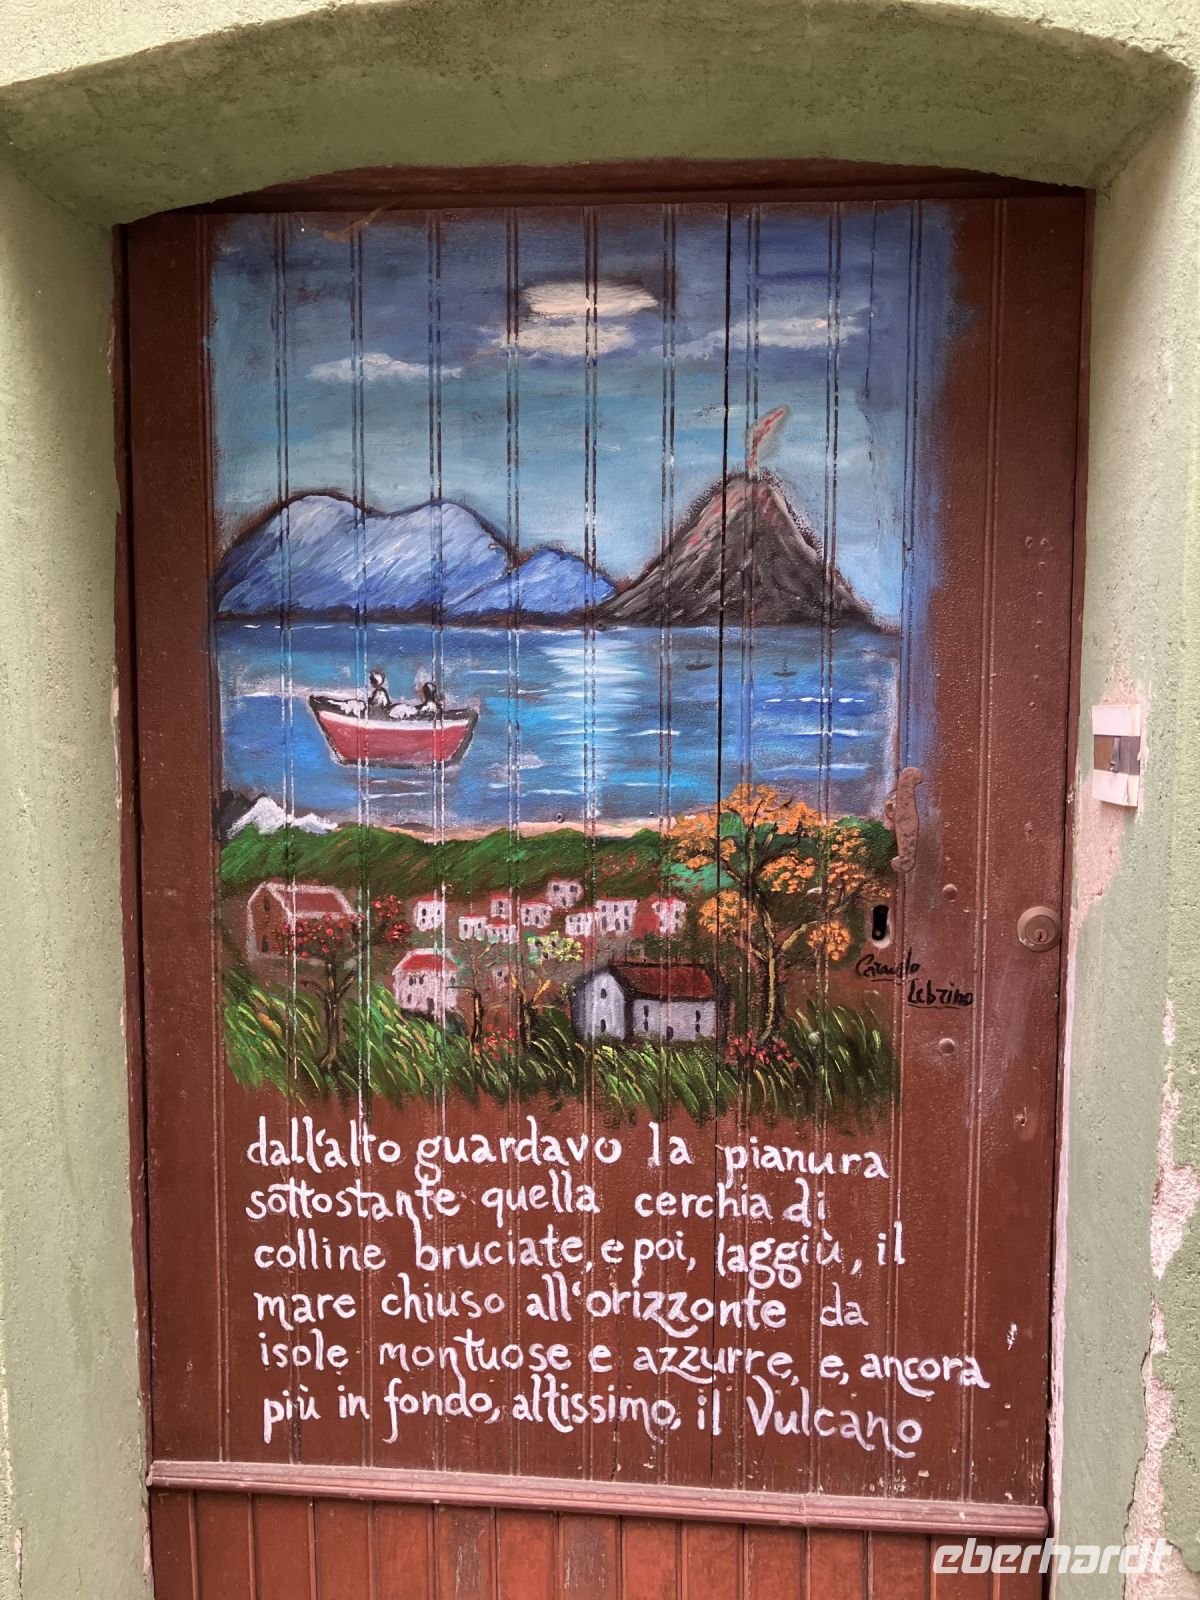 Lebrino
dall'alto guardavo la pianura
sottostante quella cerchia di
colline bruciate, e poi, laggiù, il
mare chiuso all'orizzonte da
isole montuose e azzurre, e, ancora
più in fondo, altissimo, il Vulcano
eberhardt